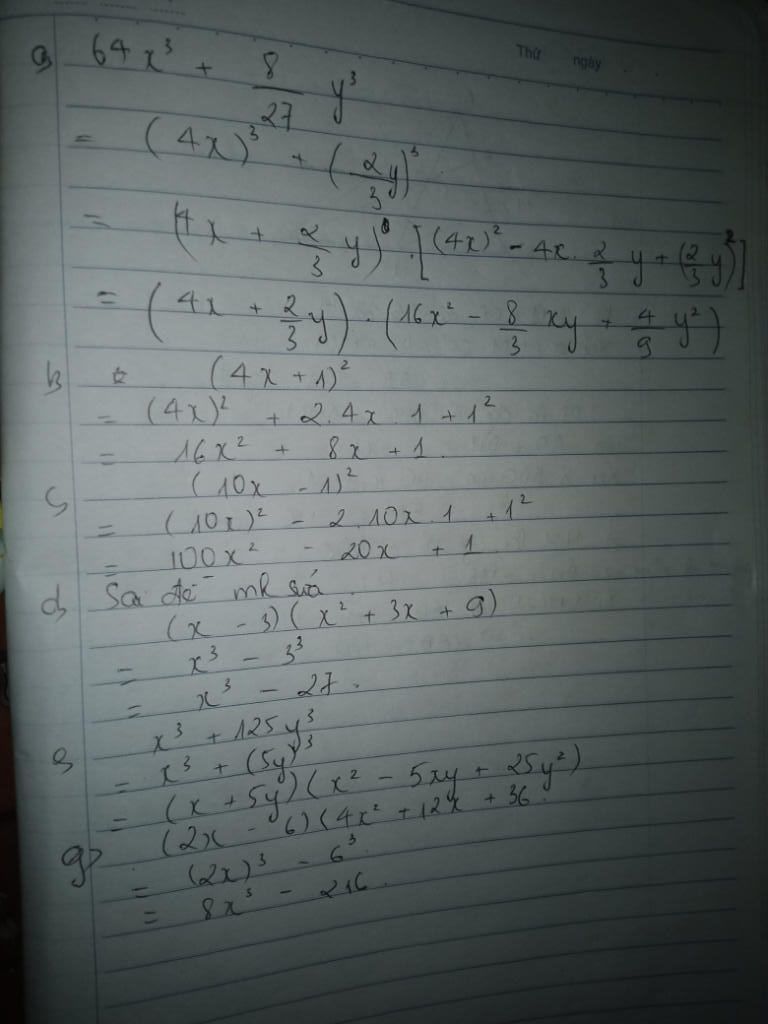 Thứ ngày
a) 64x³ + 8/27 y³
= (4x)³ + (2/3 y)³
= (4x + 2/3 y) . [(4x)² - 4x . 2/3 y + (2/3 y)²]
= (4x + 2/3 y) . (16x² - 8/3 xy + 4/9 y²)
b) (4x + 1)²
= (4x)² + 2.4x.1 + 1²
= 16x² + 8x + 1.
c) (10x - 1)²
= (10x)² - 2.10x.1 + 1²
= 100x² - 20x + 1
d) Sai đề mk sửa
(x - 3)(x² + 3x + 9)
= x³ - 3³
= x³ - 27.
e) x³ + 125y³
= x³ + (5y)³
= (x + 5y)(x² - 5xy + 25y²)
g) (2x - 6)(4x² + 12x + 36
= (2x)³ - 6³
= 8x³ - 216.